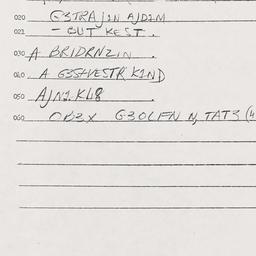 020 G3TRAJ1N AJD1M
021 - OUT KEST.
030 A BRIDRNZIN.
040 A G3SHVESTR K1ND
050 AJN1KL8
060 OB3X G3OLFN N, TAT3 (4